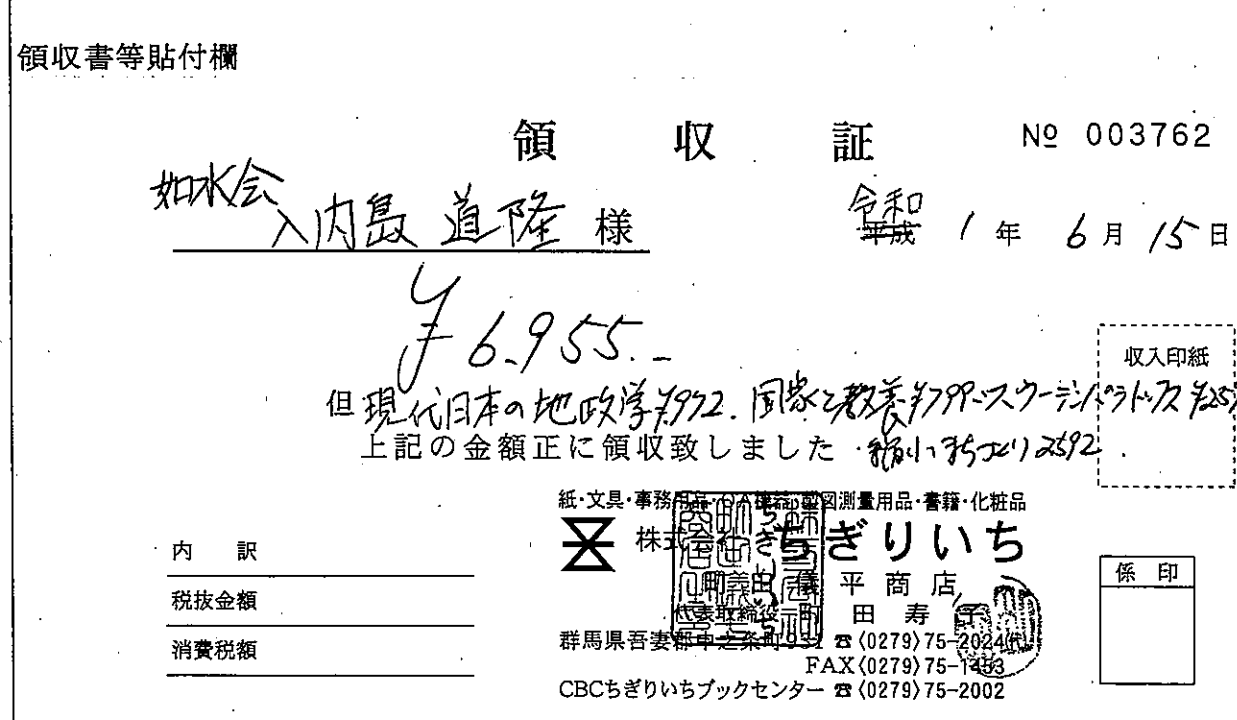 領収書等貼付欄
領 収 証 № 003762
如水会
入内島 道隆 様
令和
平成 1 年 6 月 15 日
¥6,955.-
収入印紙
但 現代日本の地政学 ¥972. 国家と教養 ¥799
上記の金額正に領収致しました 縮小まちづくり 2592
紙・文具・事務用品・OA機器・製図測量用品・書籍・化粧品
株式会社 ちぎりいち
町田儀平商店
代表取締役 町田寿子
群馬県吾妻郡中之条町931 ☎(0279)75-2024(代)
FAX(0279)75-1453
CBCちぎりいちブックセンター ☎(0279)75-2002
内 訳
税抜金額
消費税額
係 印